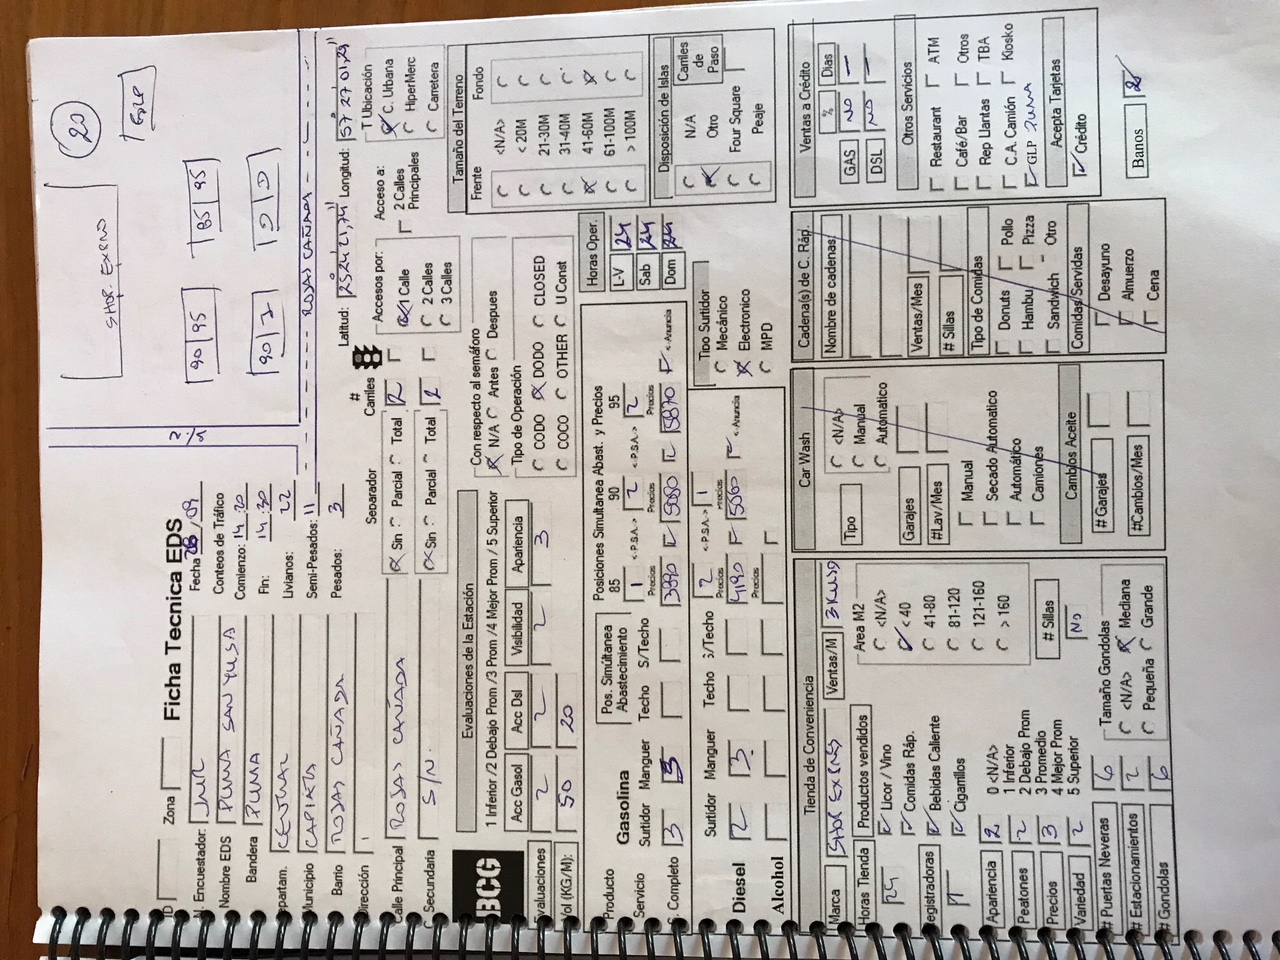 20
SHOP. EXPRESS
GLP
90 95
85 95
90 D
D D
ROJAS CAÑADA
ID Zona Ficha Tecnica EDS
N. Encuestador: JMR
Fecha /09
Nombre EDS PUMA SAN
Conteos de Tráfico
Bandera PUMA
Comienzo: 14:20
Fin: 14:30
Departam. CENTRAL
Livianos: 22
Municipio CAPIATA
Semi-Pesados: 11
Barrio ROJAS CAÑADA
Pesados: 3
Dirección
Latitud: 25 24 21,74" Longitud: 57 27 01,29"
Separador # Carriles
Calle Principal ROJAS CAÑADA Sin Parcial Total 2
C Secundaria S/N. Sin Parcial Total 2
Accesos por:
1 Calle
2 Calles
3 Calles
Acceso a:
2 Calles Principales
T Ubicación
C. Urbana
HiperMerc
Carretera
BCG
Evaluaciones de la Estación
1 Inferior /2 Debajo Prom /3 Prom /4 Mejor Prom / 5 Superior
Acc Gasol Acc Dsl Visibilidad Apariencia
Evaluaciones 2 2 2 3
Vol (KG/M): 50 20
Con respecto al semáforo
N/A Antes Despues
Tipo de Operación
CODO DODO CLOSED
COCO OTHER U Const
Tamaño del Terreno
Frente Fondo
<N/A>
< 20M
21-30M
31-40M
41-60M
61-100M
> 100M
Producto Pos. Simúltanea Abastecimiento
Posiciones Simultanea Abast. y Precios
Servicio Gasolina 85 90 95
Surtidor Manguer Techo S/Techo 1 <-P.S.A.-> 2 <-P.S.A.-> 2
Precios Precios Precios
S. Completo 3 5 3990 5080 5870 <-Anuncia
Surtidor Manguer Techo S/Techo 2 <-P.S.A.-> 1
Precios Precios
Diesel 2 3 4190 5560 <-Anuncia
Alcohol
Horas Oper.
L-V 24
Sab 24
Dom 24
Tipo Surtidor
Mecánico
Electronico
MPD
Disposición de Islas
N/A
Otro
Four Square
Peaje
Carriles de Paso
Tienda de Conveniencia
Marca SHOP EXPRESS Ventas/M
Horas Tienda 24
Productos vendidos
Licor / Vino
Comidas Ráp.
Bebidas Caliente
Cigarrillos
Registradoras 1
Area M2
<N/A>
< 40
41-80
81-120
121-160
> 160
Apariencia 2
Peatones 2
Precios 3
Variedad 2
0 <N/A>
1 Inferior
2 Debajo Prom
3 Promedio
4 Mejor Prom
5 Superior
# Sillas
No
# Puertas Neveras 6
# Estacionamientos 2
# Gondolas 6
Tamaño Gondolas
<N/A> Mediana
Pequeña Grande
Car Wash
Tipo
<N/A>
Manual
Automatico
Garajes
#Lav/Mes
Manual
Secado Automatico
Automático
Camiones
Cambios Aceite
# Garajes
#Cambios/Mes
Cadena(s) de C. Ráp.
Nombre de cadenas:
Ventas/Mes
# Sillas
Tipo de Comidas
Donuts Pollo
Hambu Pizza
Sandwich Otro
Comidas Servidas
Desayuno
Almuerzo
Cena
Ventas a Crédito
% Dias
GAS NO —
DSL NO —
Otros Servicios
Restaurant ATM
Café/Bar Otros
Rep Llantas TBA
C.A. Camión Kiosko
GLP PUMA
Acepta Tarjetas
Crédito
Banos 2